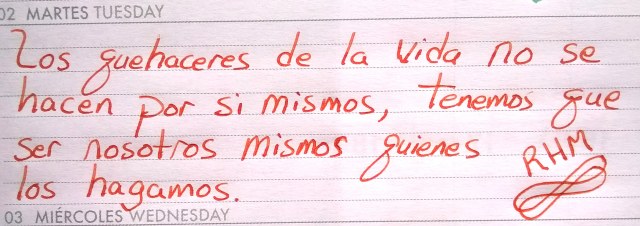 02 MARTES TUESDAY
Los quehaceres de la vida no se
hacen por si mismos, tenemos que
ser nosotros mismos quienes
los hagamos.
RHM
03 MIÉRCOLES WEDNESDAY